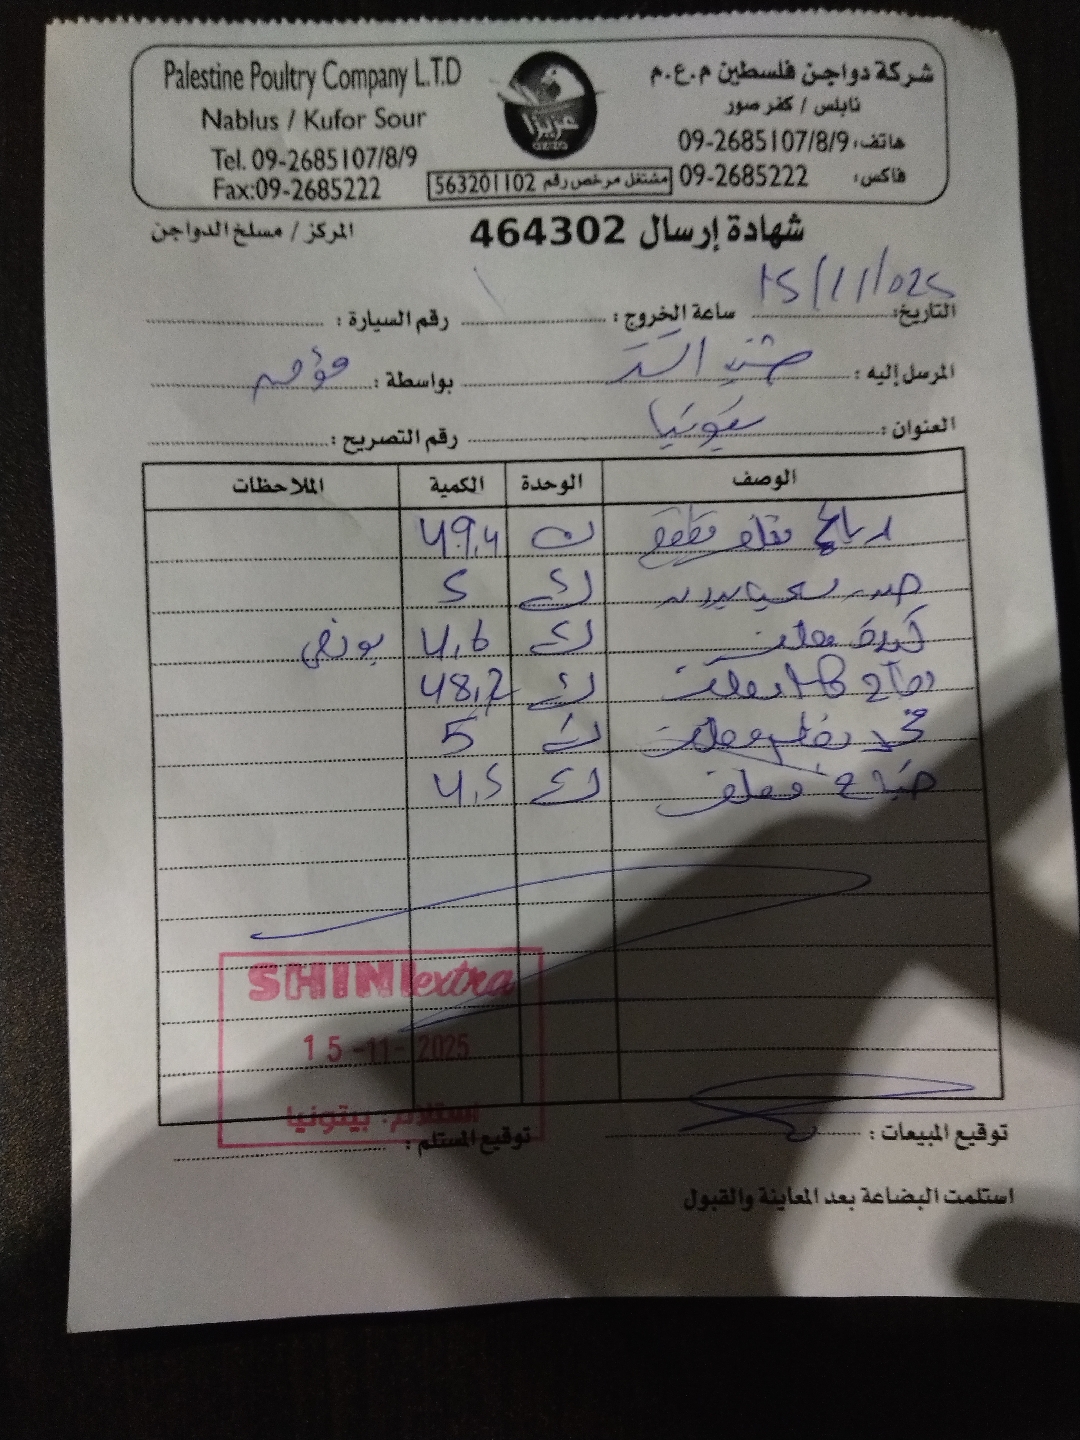 Palestine Poultry Company L.T.D
Nablus / Kufor Sour
Tel. 09-2685107/8/9
Fax:09-2685222
عزيزا
شركة دواجن فلسطين م.ع.م
نابلس / كفر صور
هاتف: 09-2685107/8/9
فاكس: 09-2685222
مشتغل مرخص رقم 563201102
شهادة إرسال 464302
المركز / مسلخ الدواجن
التاريخ: 15/11/025 ساعة الخروج : رقم السيارة :
المرسل إليه : شني اكسترا بواسطة :
العنوان : بيتونيا رقم التصريح :
الوصف الوحدة الكمية الملاحظات
ك 49.4
صدر ك 5
كبدة مغلف ك 4.6
دجاج مغلف ك 48.2
مغلف ك 5
مغلف ك 4.5
SHINI extra
15-11-2025
استلام. بيتونيا
توقيع المبيعات : توقيع المستلم :
استلمت البضاعة بعد المعاينة والقبول